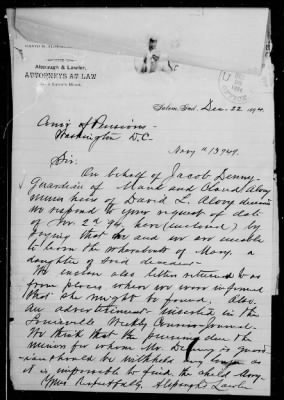 OFFICE OF
Alspaugh & Lawler,
ATTORNEYS AT LAW
Salem, Ind. Dec. 22, 1894.
Com'r of Pensions
Washington D.C.
Navy # 13949.
Sir:
On behalf of Jacob Denny
Guardian of Maud and Claud Alony
minor heir of David L. Alony deceased
we respond to your request of date
of Nov. 2nd 94, here (inclosed) by
saying that we are unable
to learn the whereabouts of Mary, a
daughter of said deceased
We enclose also letters returned to us
from places where we were informed
that she might be found. Also
an advertisement inserted in the
Louisville Weekly Courier Journal.
We think that the pension due the
minors for whom Mr. Denny is guard-
ian should be withheld no longer as
it is impossible to find the child Mary.
Yours Respectfully, Alspaugh & Lawler